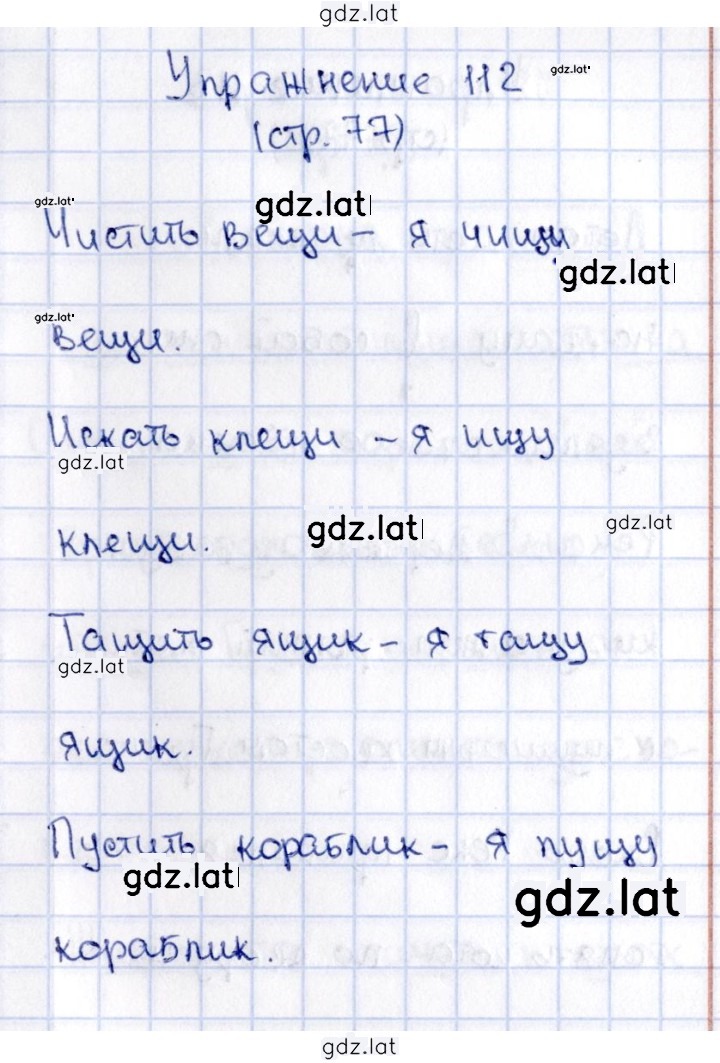 gdz.lat
Упражнение 112 gdz.lat
(стр. 77)
gdz.lat gdz.lat
Чистить вещи - я чищу
gdz.lat
gdz.lat
вещи.
Искать клещи - я ищу
gdz.lat
gdz.lat gdz.lat
клещи.
Тащить ящик - я тащу
gdz.lat
ящик.
Пустить кораблик - я пущу
gdz.lat gdz.lat
кораблик.
gdz.lat